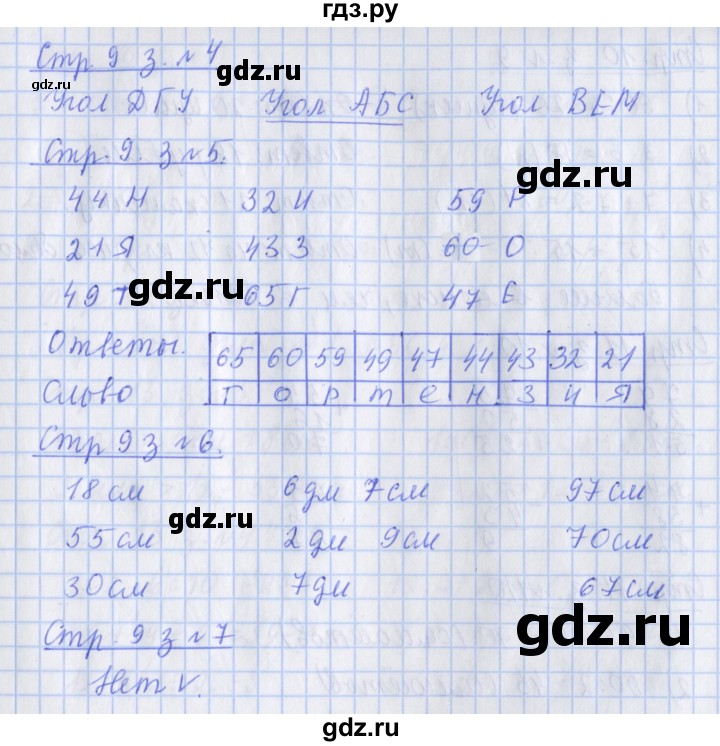 гдз.ру
Стр 9 з. №4
gdz.ru
gdz.ru
Угол ДБУ Угол АБС Угол ВЕМ
Стр. 9. з №5.
gdz.ru
44 Н 32 И 59 Р
21 Я 43 З 60 О
49 Т 65 Г 47 Е
gdz.ru
gdz.ru
Ответы. 65 60 59 49 47 44 43 32 21
Слово Г О Р Т Е Н З И Я
Стр 9 з №6.
gdz.ru
18 см 6 дм 7 см 97 см
gdz.ru
55 см 2 дм 9 см 70 см
30 см 7 дм 67 см
gdz.ru
Стр. 9 з №7
Нет V.
gdz.ru
gdz.ru